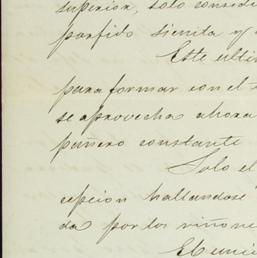 superior, solo conside
porfido sienita y
Este ulti
para formar con el
se aprovecha ahora
pañero constante
Solo el
epcion hallandose
da por los riñone
El uni